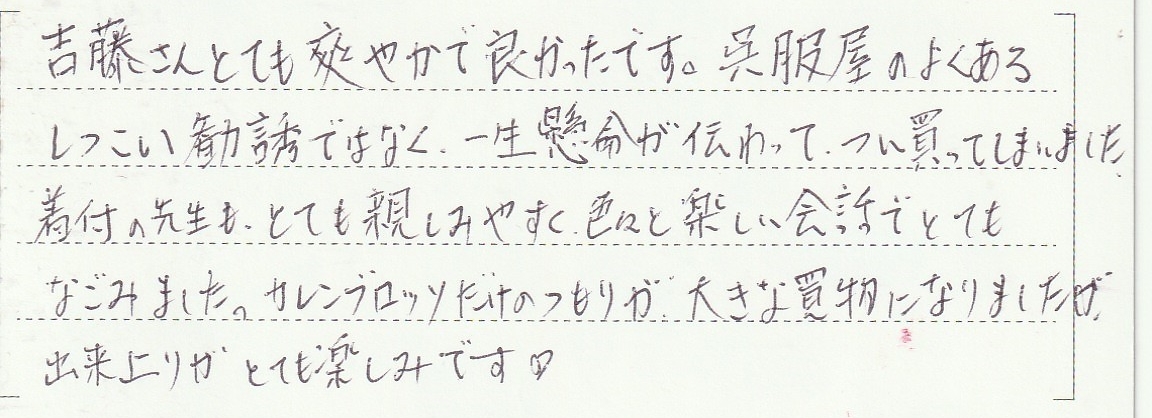 吉藤さんとても爽やかで良かったです。呉服屋のよくある
しつこい勧誘ではなく、一生懸命が伝わって、つい買ってしまいました。
着付の先生も、とても親しみやすく、色々と楽しい会話でとても
なごみました。カレンブロッソだけのつもりが、大きな買物になりましたが、
出来上りがとても楽しみです♡